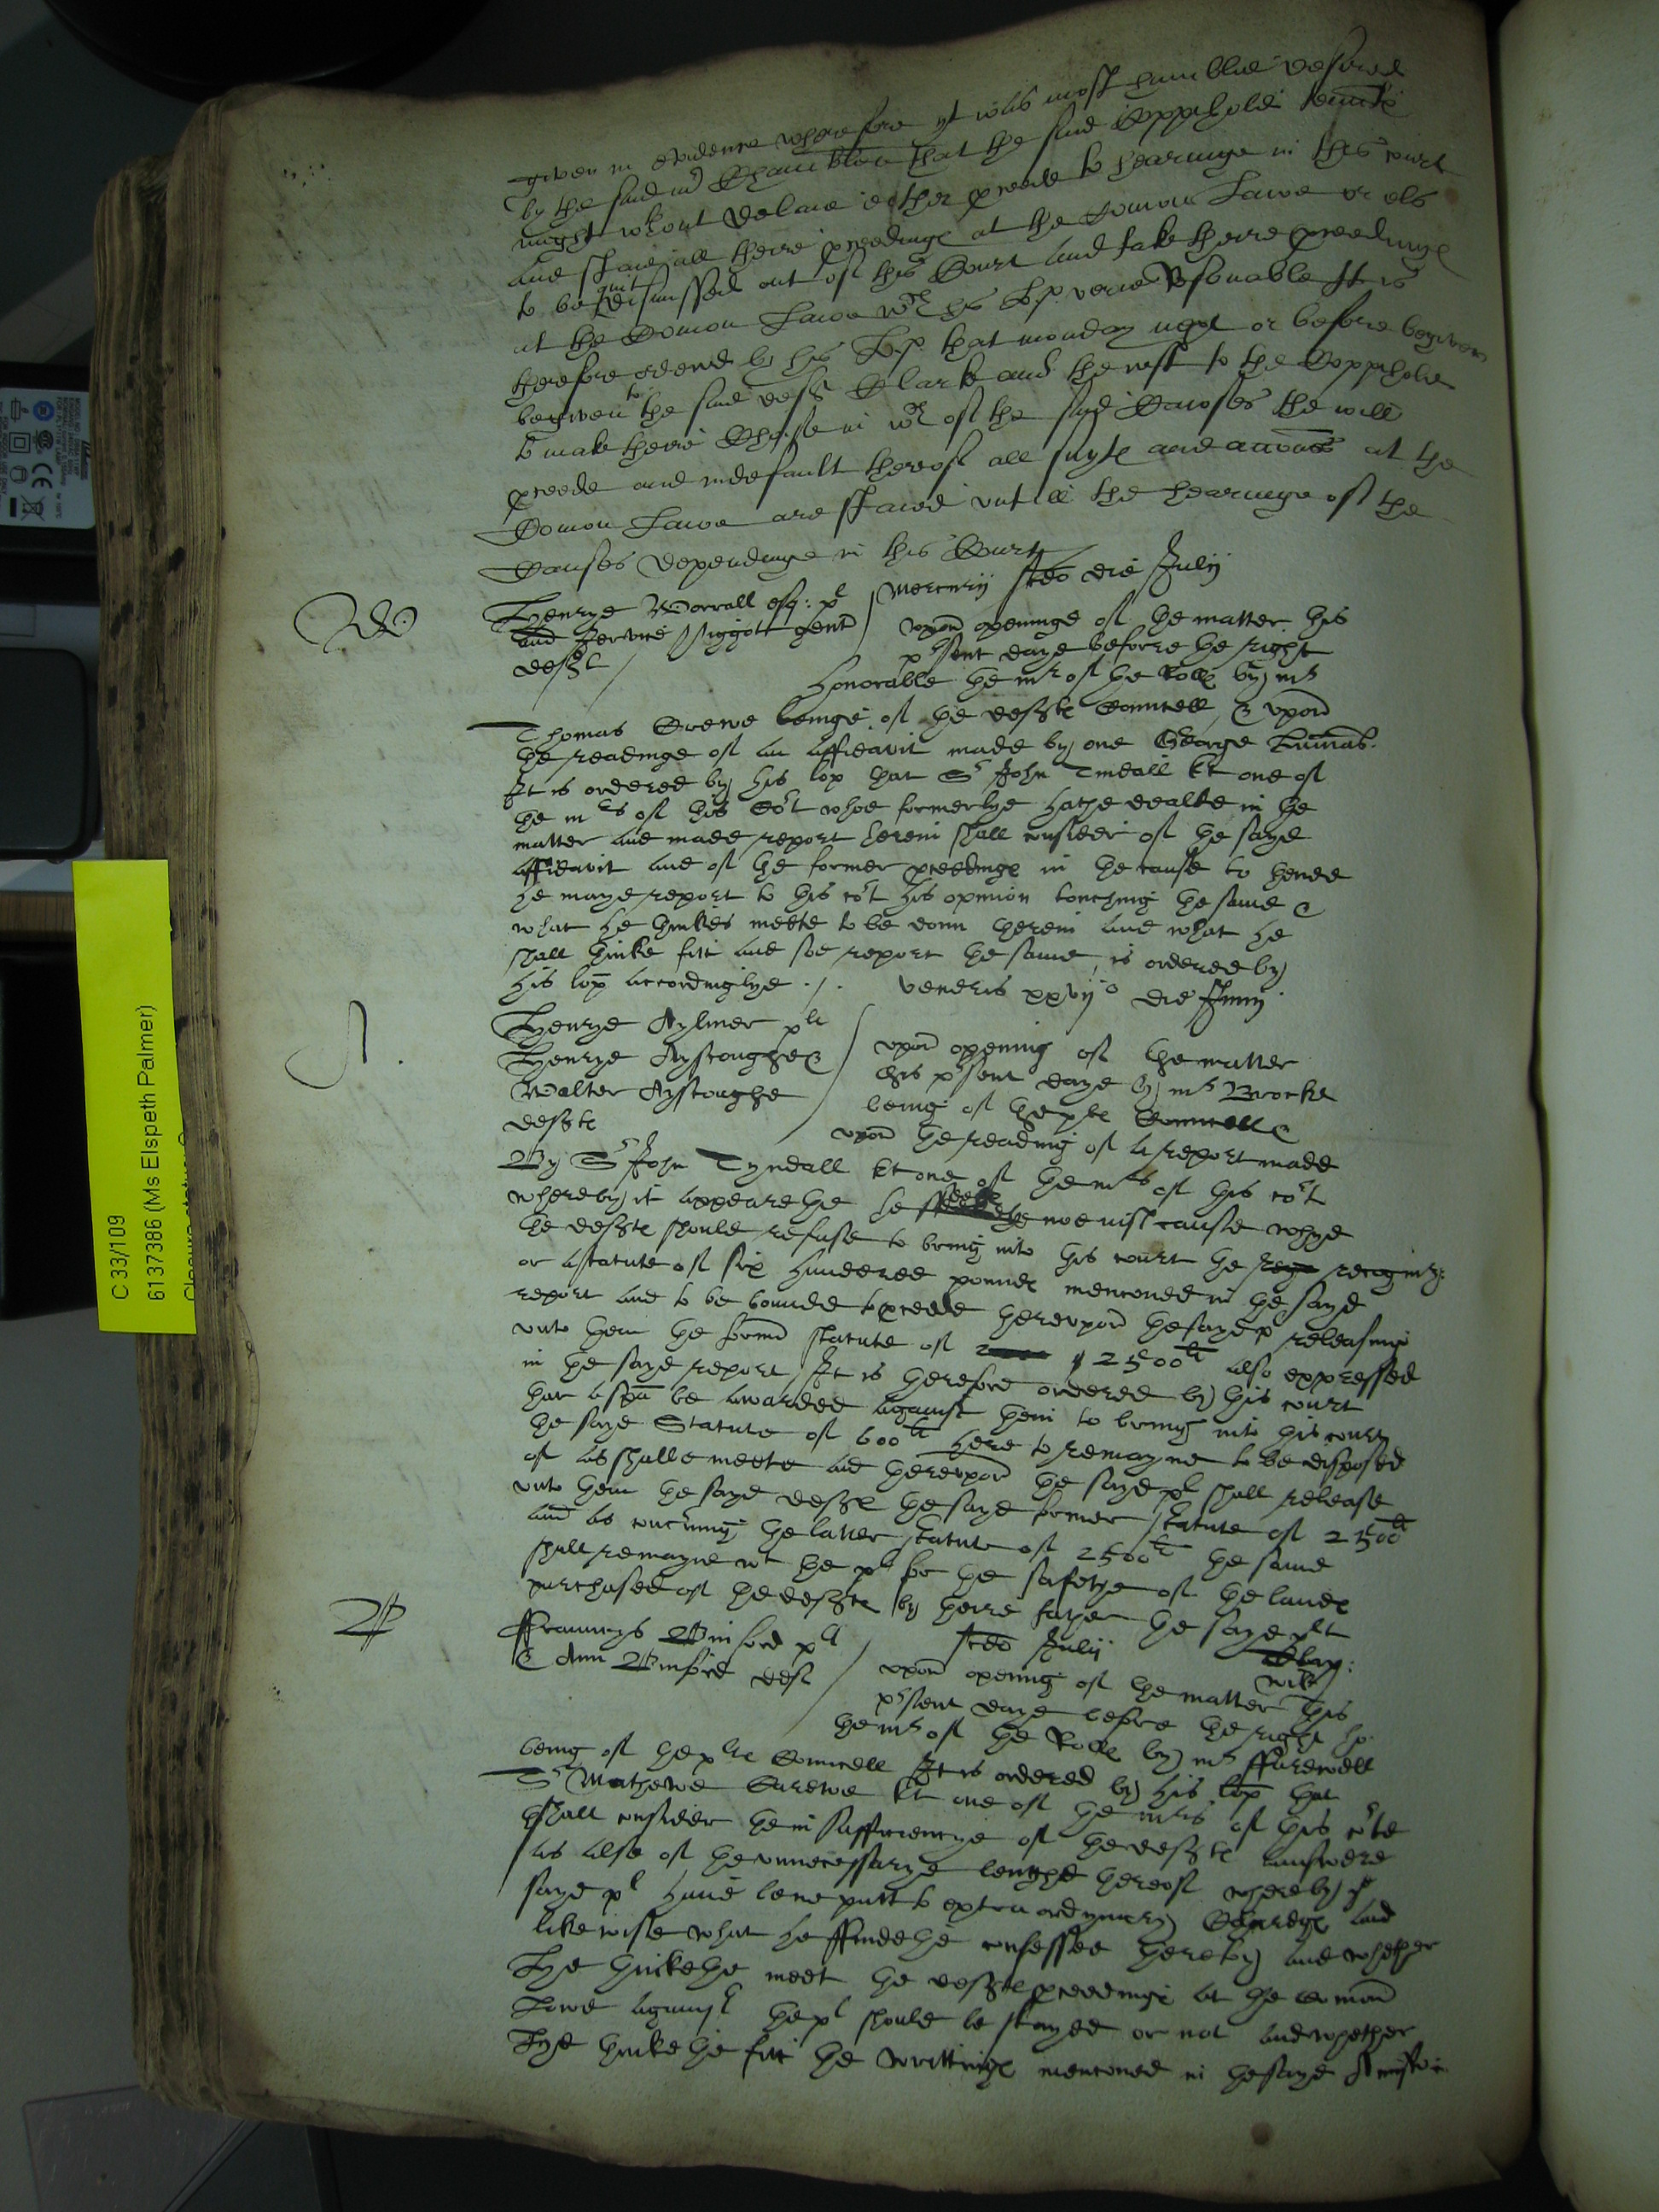 given in evidence wherefore yt was most humblie desired
by the said mr Chamberlen that the said Coppihold tennts
might wthout delaie either proceede to hearinge in this court
and staie all theire proceedinge at the Comon Lawe or els
to be quit dismissed out of this Court and take theire proceedinge
at the Comon Lawe wch his Lp. verie Resonable It is
therefore ordered by his Lp. that monday next or before be given
begiven to the said deft Clark and the rest to the Coppiholde
to make theire Choise in wch of the said Causes the will
proceede and indefault thereof all suyte and accons at the
Comon Lawe are staied untill the hearinge of the
Causes dependinge in this Court
Mercurij scdo die Julij
W
Henrye Worrall esq: pl
and Jervice Piggott gent
deft
upon openinge of the matter this
psent daye before the right
honorable the mr of the Rolle by mr
Thomas Crewe beinge of the defte Councell & upon
the readinge of an affidavit made by one George
It is ordered by his lop that Sr John Tindall kt one of
the mrs of this Cort whoe formerlye hathe dealte in the
matter and made report herein shall consider of the sayd
affidavit and of the former proceedinge in the cause to thende
he maye report to this cort his opinion touching the same &
what he thinkes meete to be donn therein and what he
shall thinke fitt and soe report the same is ordered by
his lop accordinglye ./.
Veneris xxvijo die Junij
A.
Henrye Aylmer plt
Henrye Ayscoughe &
Walter Ayscoughe
defte
upon opening of the matter
this psent daye by mr Brocke
being of the plte Councell &
upon the reading of a report made
By Sr John Tyndall kt one of the mrs of this cort
whereby it appearethe he noe iust cause whye
the defte should refuse to bring into this court the recogniz:
or a statute of six hundered pounde mencioned in the sayd
report and to be bounde to proceede thereupon the sayd pl releasing
unto them the former statute of 2500li also expressed
in the sayd report It is therefore ordered by this court
that a spa be awarded against them to bring into this court
the sayd Statute of 600li there to remayne to be disposed
of as shalbe meete and thereupon the sayd pl shall release
unto them the sayd defte the sayd former statute of 2500li
and as concerning the latter statute of 2500li the same
shall remayne wt the plt for the safetye of the lande
purchased of the defte by theire father the sayd plt
W
ffrauncys Winford pl
& Ann Winford deft
scdo Julij
upon opening of the matter this
psent daye before the right ho:
the mr of the Rolle by mr ffarewell
being of the plte Councell It is ordered by his lop that
Sr Mathewe Carewe kt one of the mrs of this corte
shall consider the insufficiencye of the defte answere
as also of the unnecessarye lengthe thereof whereby ye
sayd pl have bene putt to extraordynary Chardge and
likewise what he ffindethe confessed thereby and whether
Hye thinkethe meet the defte proceedinge at the comon
Lawe against the pl should be stayed or not and whether
Hye thinkethe fitt the writtinge mencioned in the sayd
C 33/109
6137386 (Ms Elspeth Palmer)